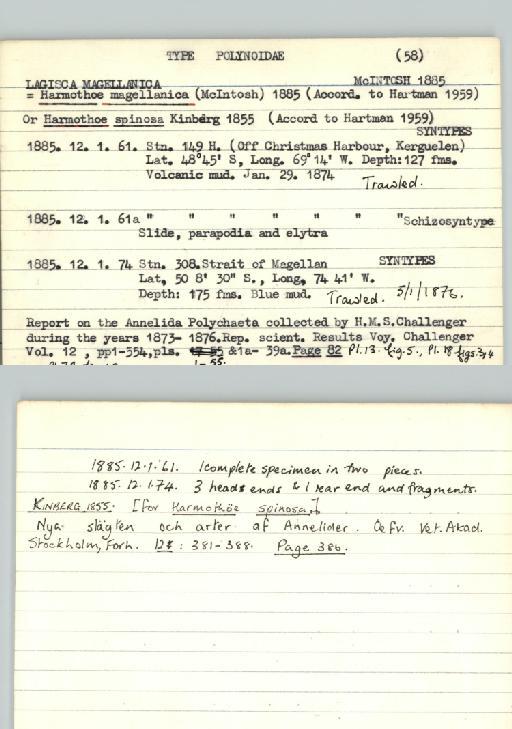 TYPE POLYNOIDAE (58)
LAGISCA MAGELLANICA McINTOSH 1885
= Harmothoe magellanica (McIntosh) 1885 (Accord. to Hartman 1959)
Or Harmothoe spinosa Kinberg 1855 (Accord to Hartman 1959)
SYNTYPES
1885. 12. 1. 61. Stn. 149 H. (Off Christmas Harbour, Kerguelen)
Lat. 48°45' S, Long. 69°14' W. Depth: 127 fms.
Volcanic mud. Jan. 29. 1874 Trawled.
1885. 12. 1. 61a " " " " " " "Schizosyntype
Slide, parapodia and elytra
1885. 12. 1. 74 Stn. 308. Strait of Magellan SYNTYPES
Lat, 50 8' 30" S., Long, 74 41' W.
Depth: 175 fms. Blue mud. Trawled. 5/1/1876.
Report on the Annelida Polychaeta collected by H.M.S.Challenger
during the years 1873- 1876.Rep. scient. Results Voy. Challenger
Vol. 12 , pp1-554,pls. &1a- 39a.Page 82 Pl.13. fig.5., Pl.18 figs.3,4
1-55.
1885.12.1.61. 1 complete specimen in two pieces.
1885.12.1.74. 3 heads ends & 1 rear end and fragments.
KINBERG, 1855. [for Harmothöe spinosa.]
Nya slägten och arter af Annelider. Oefv. Vet. Akad.
Stockholm, Forh. 12 : 381-388. Page 386.